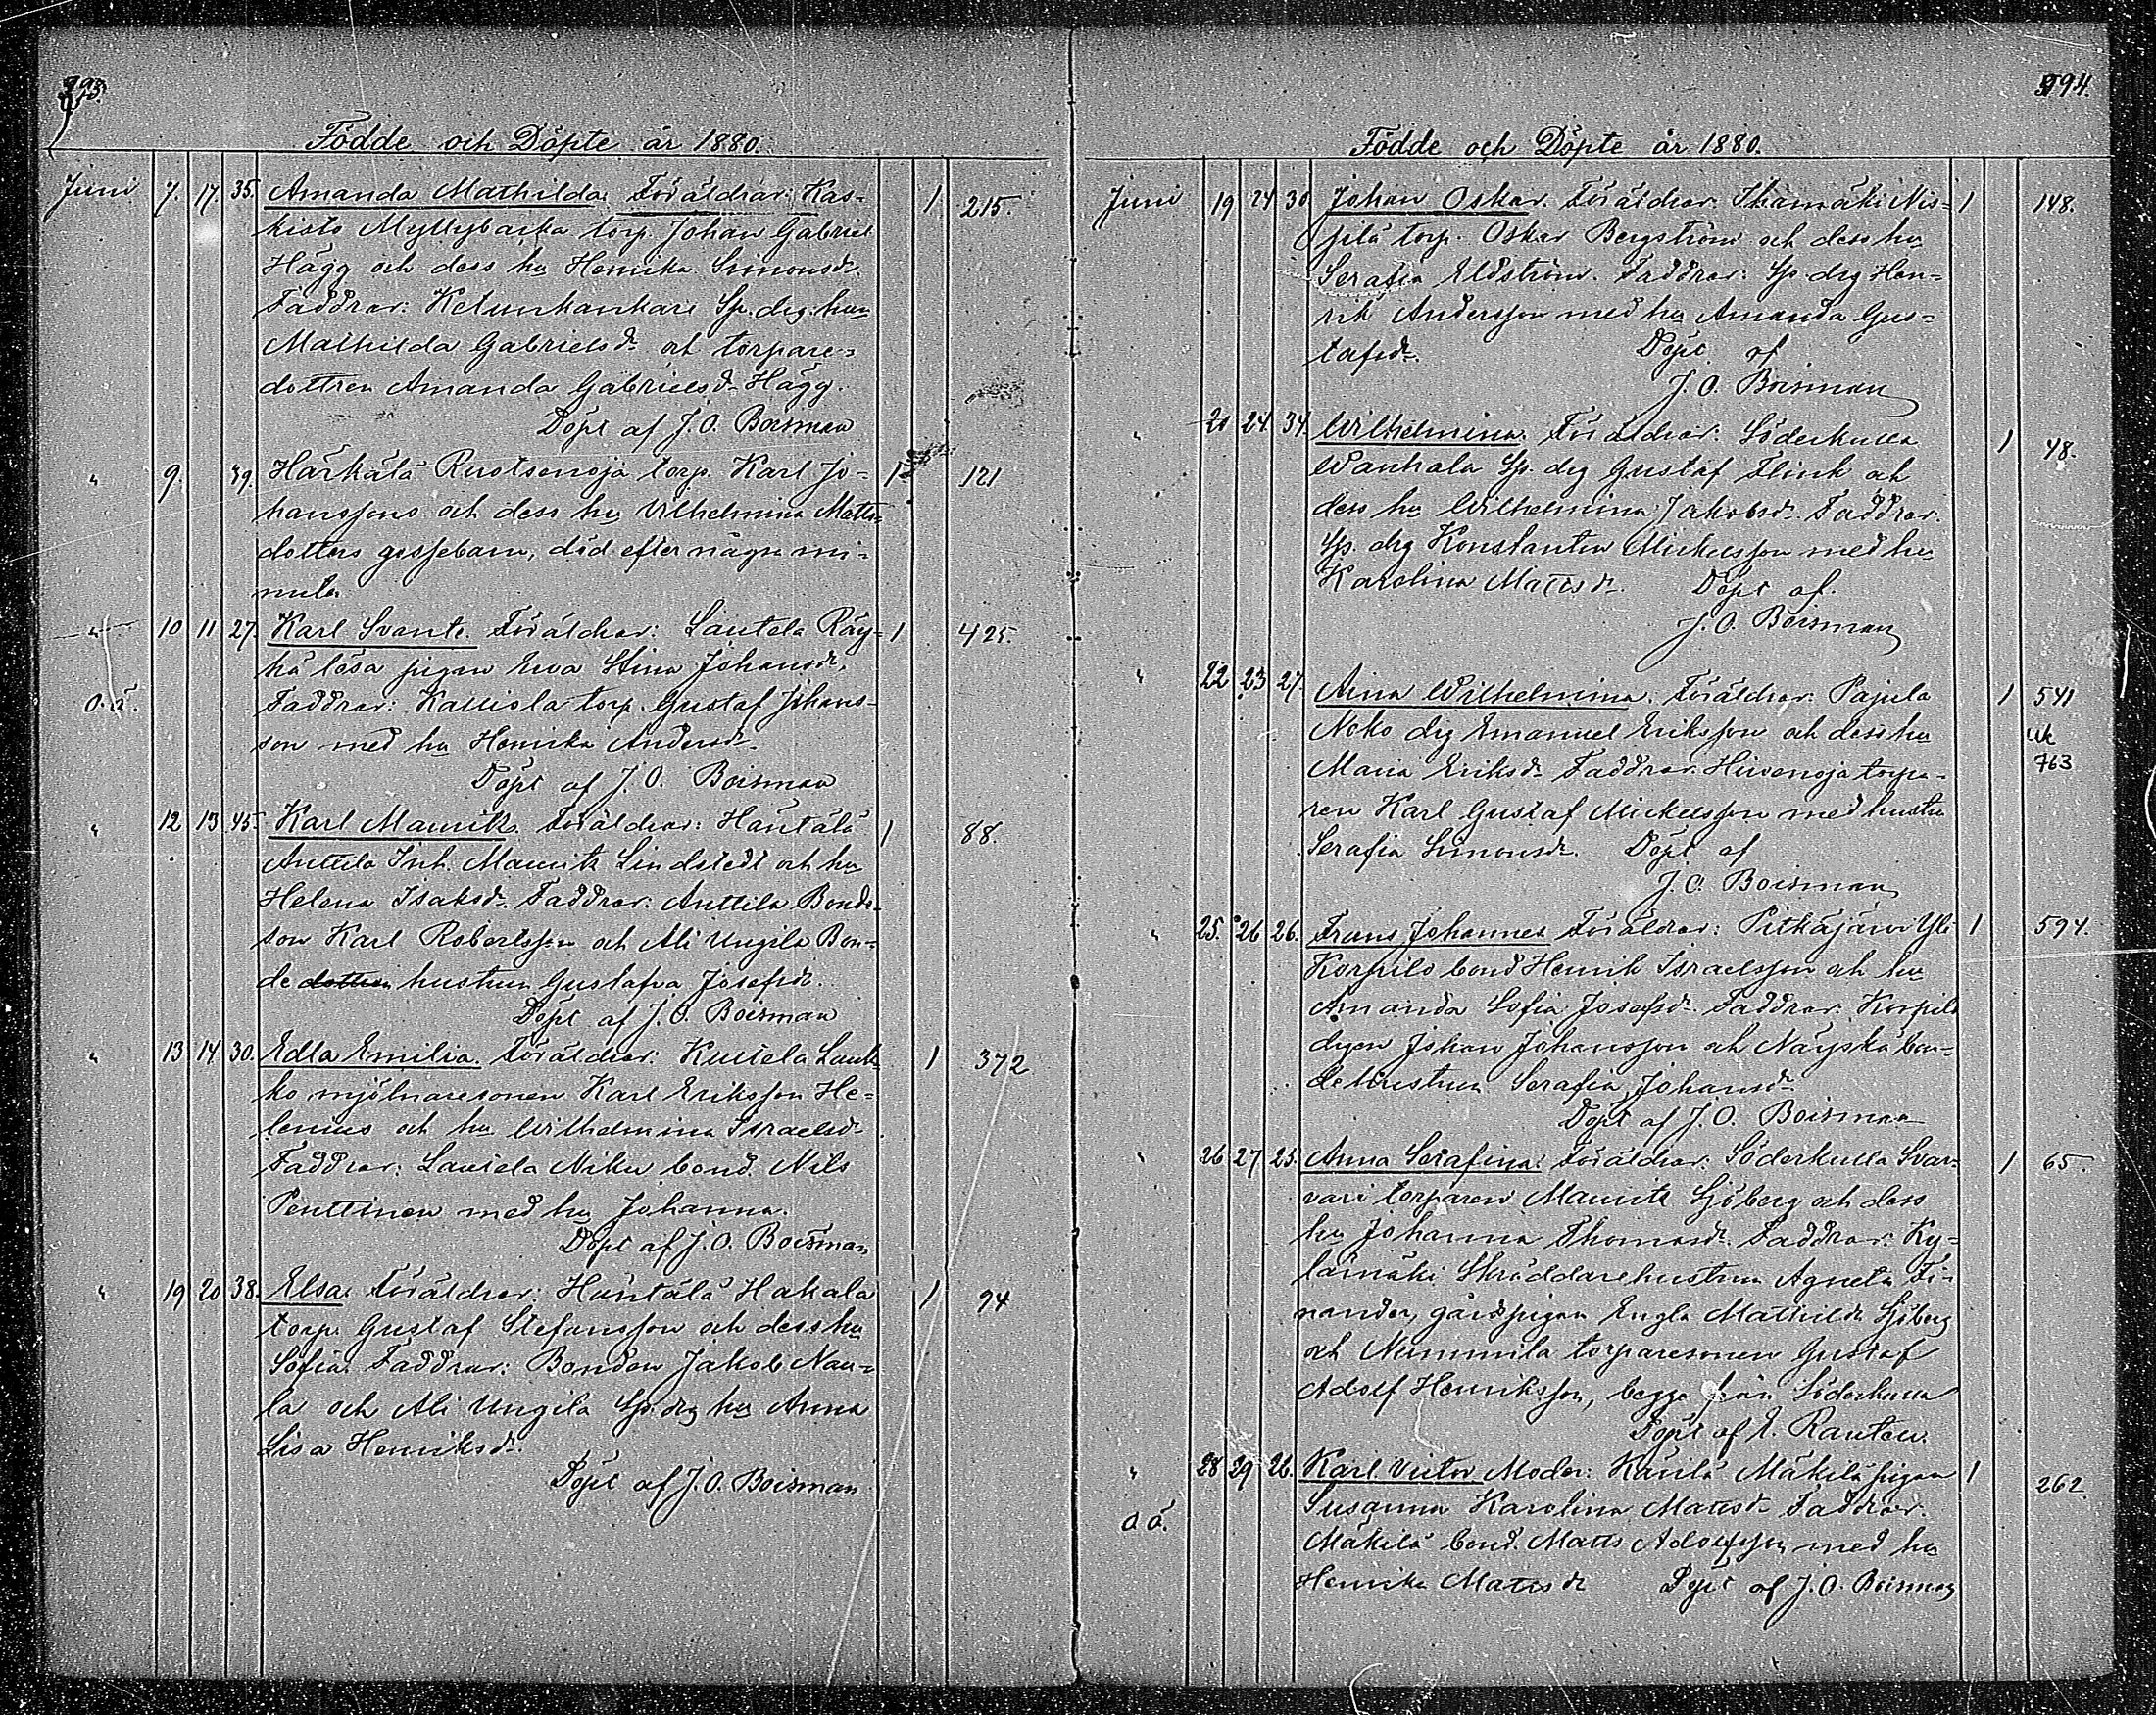 Födde och Döpte år 1880.
Juni 7. 17. 35. Amanda Mathilda. Föräldrar: Kas- 1 215.
kisto Myllybacka torp. Johan Gabriel
Hägg och dess hu Henrika Simonsdr.
Faddrar: Ketunkankare Sp. drg. hun
Mathilda Gabrielsdr och torpare-
dottren Amanda Gabrielsdr Hägg.
Döpt af J. O. Boisman
" 9. 39. Härkälä Ruotsenoja torp. Karl Jo- 1 121
hanssons och dess hu Vilhelmina Matts-
dotters gossebarn, död efter några mi-
nuter
" 10 11 27. Karl Svante. Föräldrar: Lautela Räy- 1 425.
hä lösa pigan Ewa Stina Johansdr,
O. ä. Faddrar: Kalliola torp. Gustaf Johans-
son med hu Henrika Andersdr.
Döpt af J. O. Boisman
" 12 13 45. Karl Maurits. Föräldrar: Häntälä 1 88.
Anttila Inh. Maurits Lindstedt och hu
Helena Isaksdr. Faddrar: Anttila Bonde-
son Karl Robertsson och Ali Ungila Bon-
de dottren hustrun Gustafva Josefsdr.
Döpt af J. O. Boisman
" 13 14 30. Edla Emilia. Föräldrar: Kultela Lauk- 1 372
ko mjölnaresonen Karl Eriksson He-
lenius och hu Wilhelmina Israelsdr
Faddrar: Lautela Niku bond. Nils
Penttinen med hu Johanna.
Döpt af J. O. Boisman
" 19 20 38. Elsa. Föräldrar: Häntälä Hakala 1 94
torp. Gustaf Stefansson och dess hu
Sofia. Faddrar: Bonden Jakob Nau-
la och Ali Ungila Sp. drg hu Anna
Lisa Henriksdr.
Döpt af J. O. Boisman
394.
Födde och Döpte år 1880.
Juni 19 24 30 Johan Oskar. Föräldrar: Ihamäki Nis- 1 148.
pilä torp. Oskar Bergström och dess hu
Serafia Eldström. Faddrar: Sp. drg Hen-
rik Andersson med hu Amanda Gus-
tafsdr. Döpt af
J. O. Boisman
" 20 24 34. Wilhelmina. Föräldrar: Söderkulla 1 48.
Wanhala Sp. drg Gustaf Flink och
dess hu Wilhelmina Jakobsdr. Faddrar.
Sp. drg Konstantin Mickelsson med hu
Karolina Mattsdr. Döpt af.
J. O. Boisman
" 22 23 27. Aina Wilhelmina. Föräldrar: Pajula 1 541
Noko drg Emanuel Eriksson och dess hu
Maria Eriksdr Faddrar: Hirvenoja torpa- 763
ren Karl Gustaf Mickelsson med hustru
Serafia Simonsdr. Döpt af
J. O. Boisman
" 25. 26 26. Frans Johannes Föräldrar: Pitkäjärvi Yli 1 594.
Korpilo bond Henrik Israelsson och hu
Amanda Sofia Josefsdr. Faddrar: Korpilo
drgen Johan Johansson och Näyskä bon-
dehustrun Serafia Johansdr
Döpt af J. O. Boisman
" 26 27 25. Anna Serafina. Föräldrar: Söderkulla Svar- 1 65.
vari torparen Maurits Sjöberg och dess
hu Johanna Thomasdr. Faddrar: Ky-
lämäki Skräddarehustrun Agneta Fi-
nander, gårdspigan Engla Mathilda Sjöberg
och Nummila torparesonen Gustaf
Adolf Henriksson, begge från Söderkulla
Döpt af E. Rautou.
" 28 29 26. Karl Victor Moder: Kärilä Mäkilä pigan 1 262.
O ä. Susanna Karolina Mattsdr Faddrar.
Mäkilä bond. Matts Adolfsson med hu
Henrika Mattsdr Döpt af J. O. Boisman